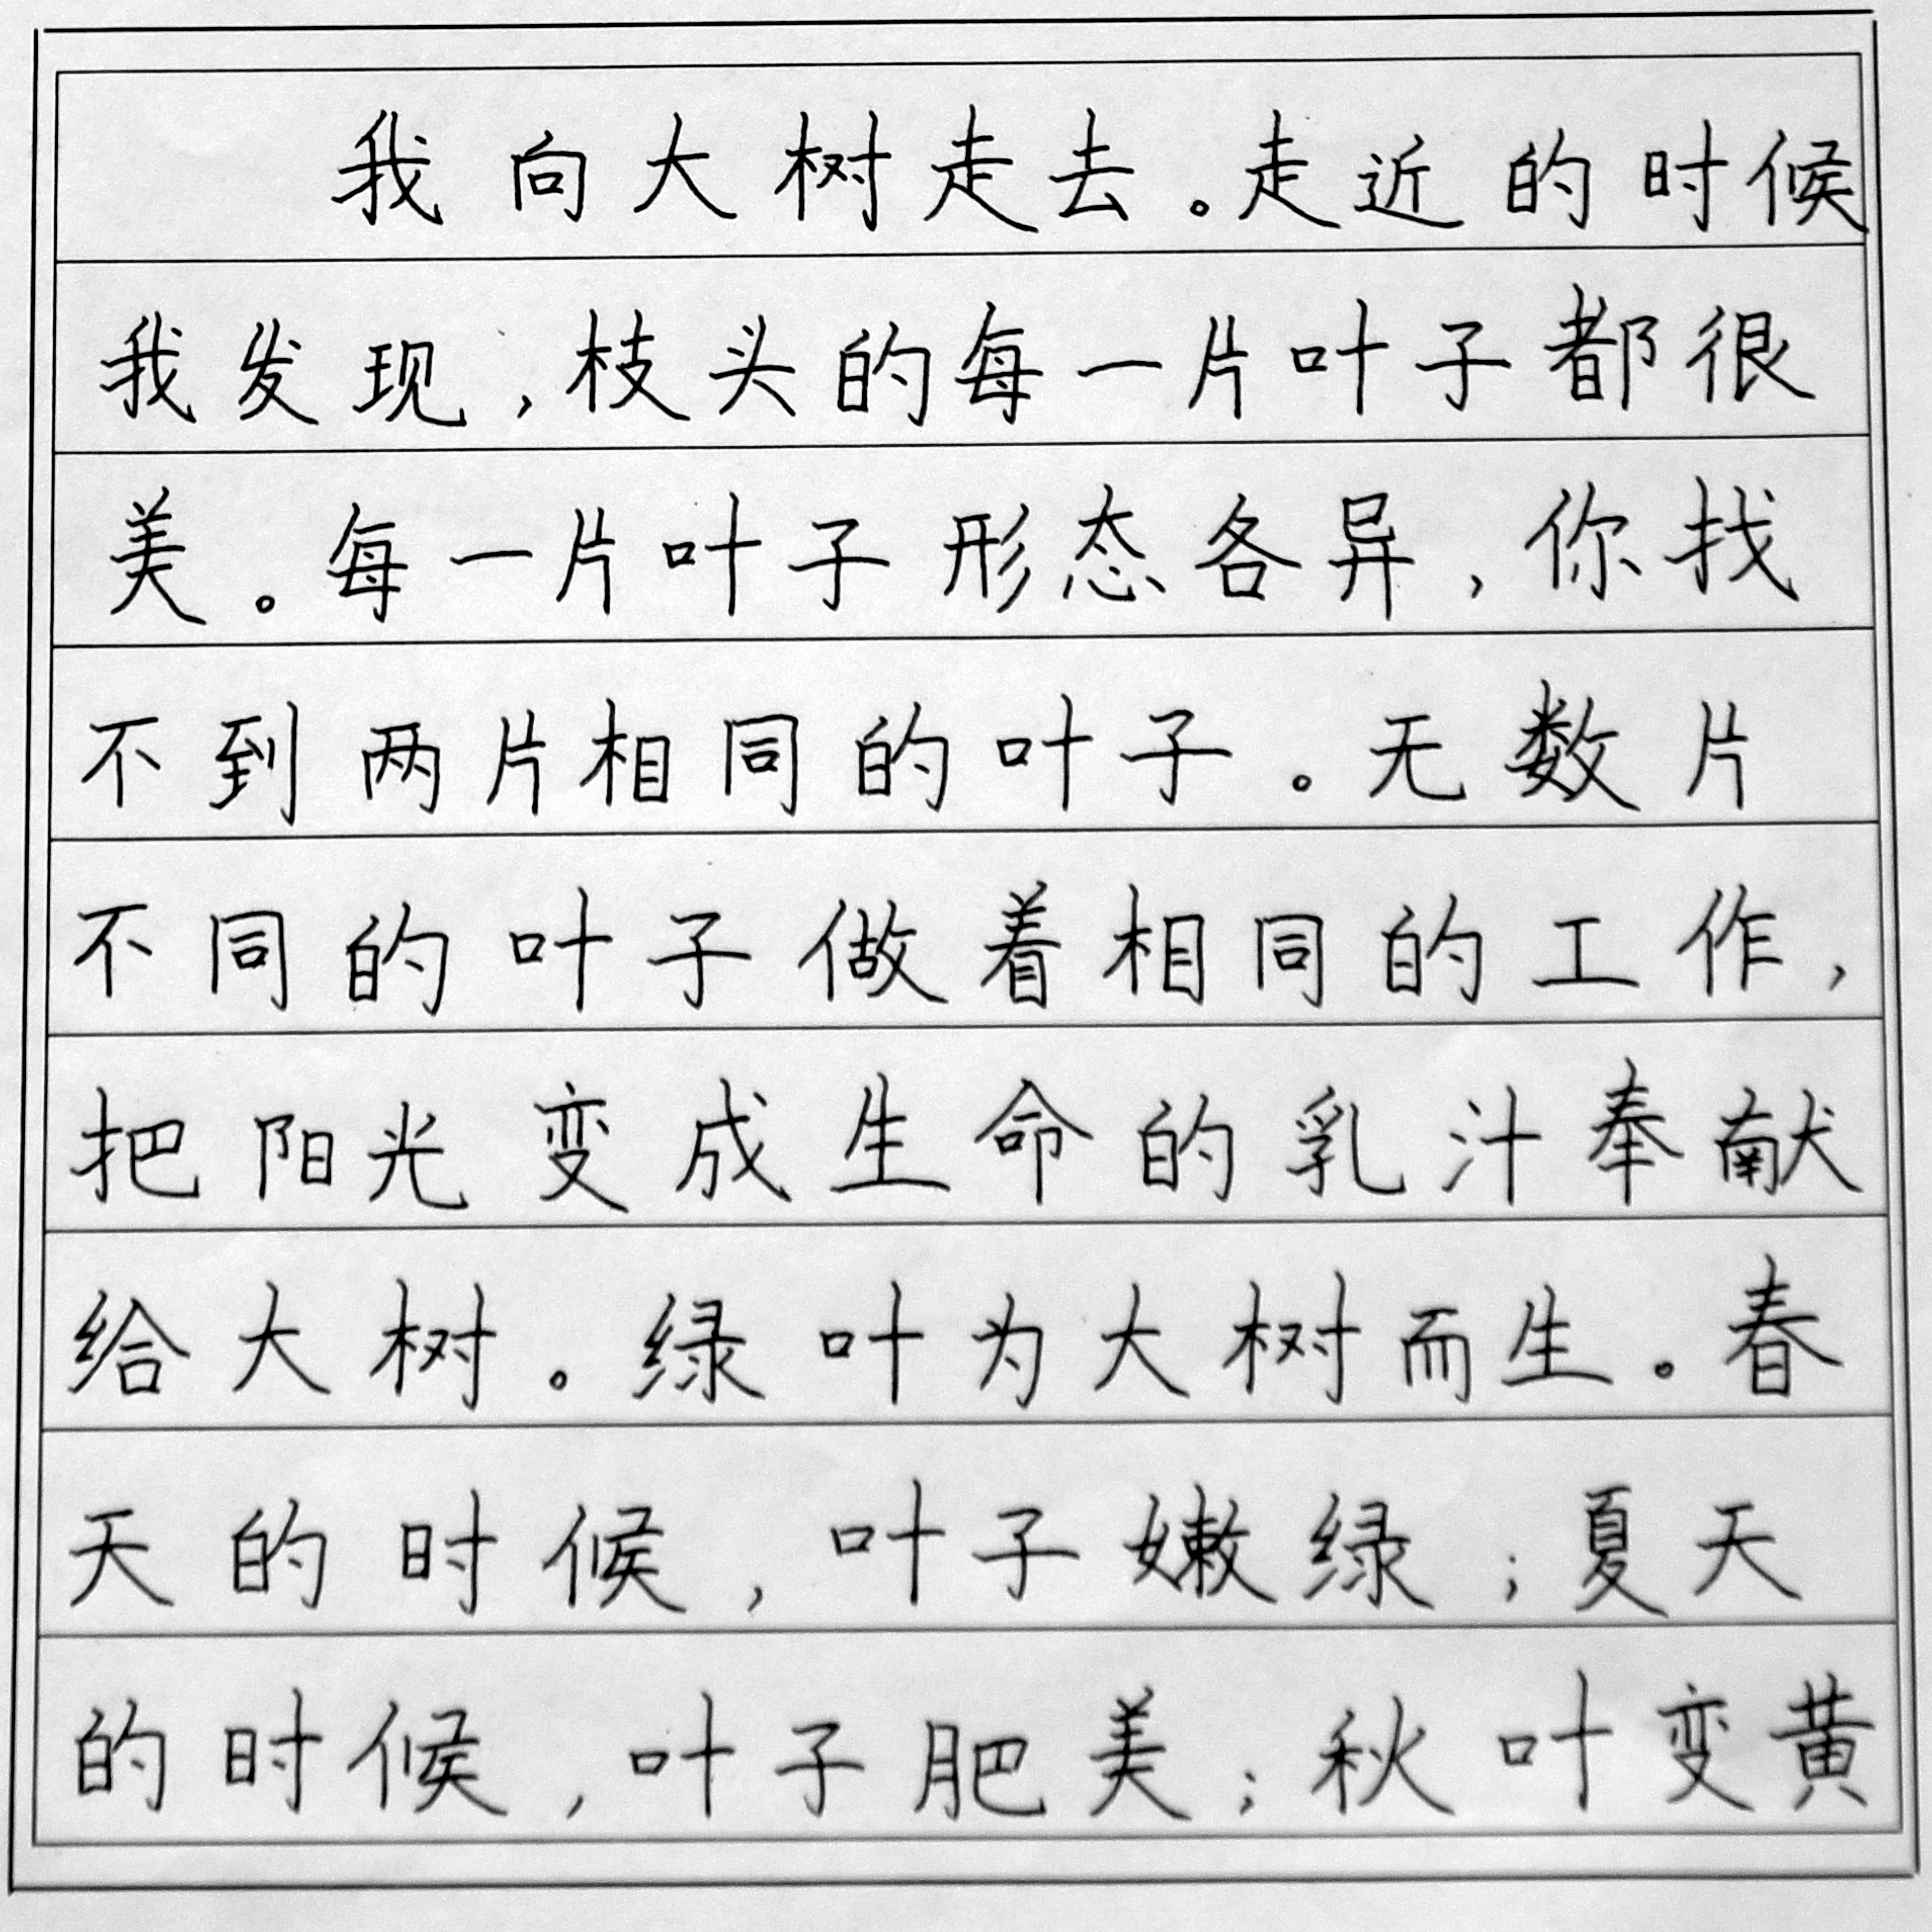 我向大树走去。走近的时候
我发现，枝头的每一片叶子都很
美。每一片叶子形态各异，你找
不到两片相同的叶子。无数片
不同的叶子做着相同的工作，
把阳光变成生命的乳汁奉献
给大树。绿叶为大树而生。春
天的时候，叶子嫩绿；夏天
的时候，叶子肥美；秋叶变黄